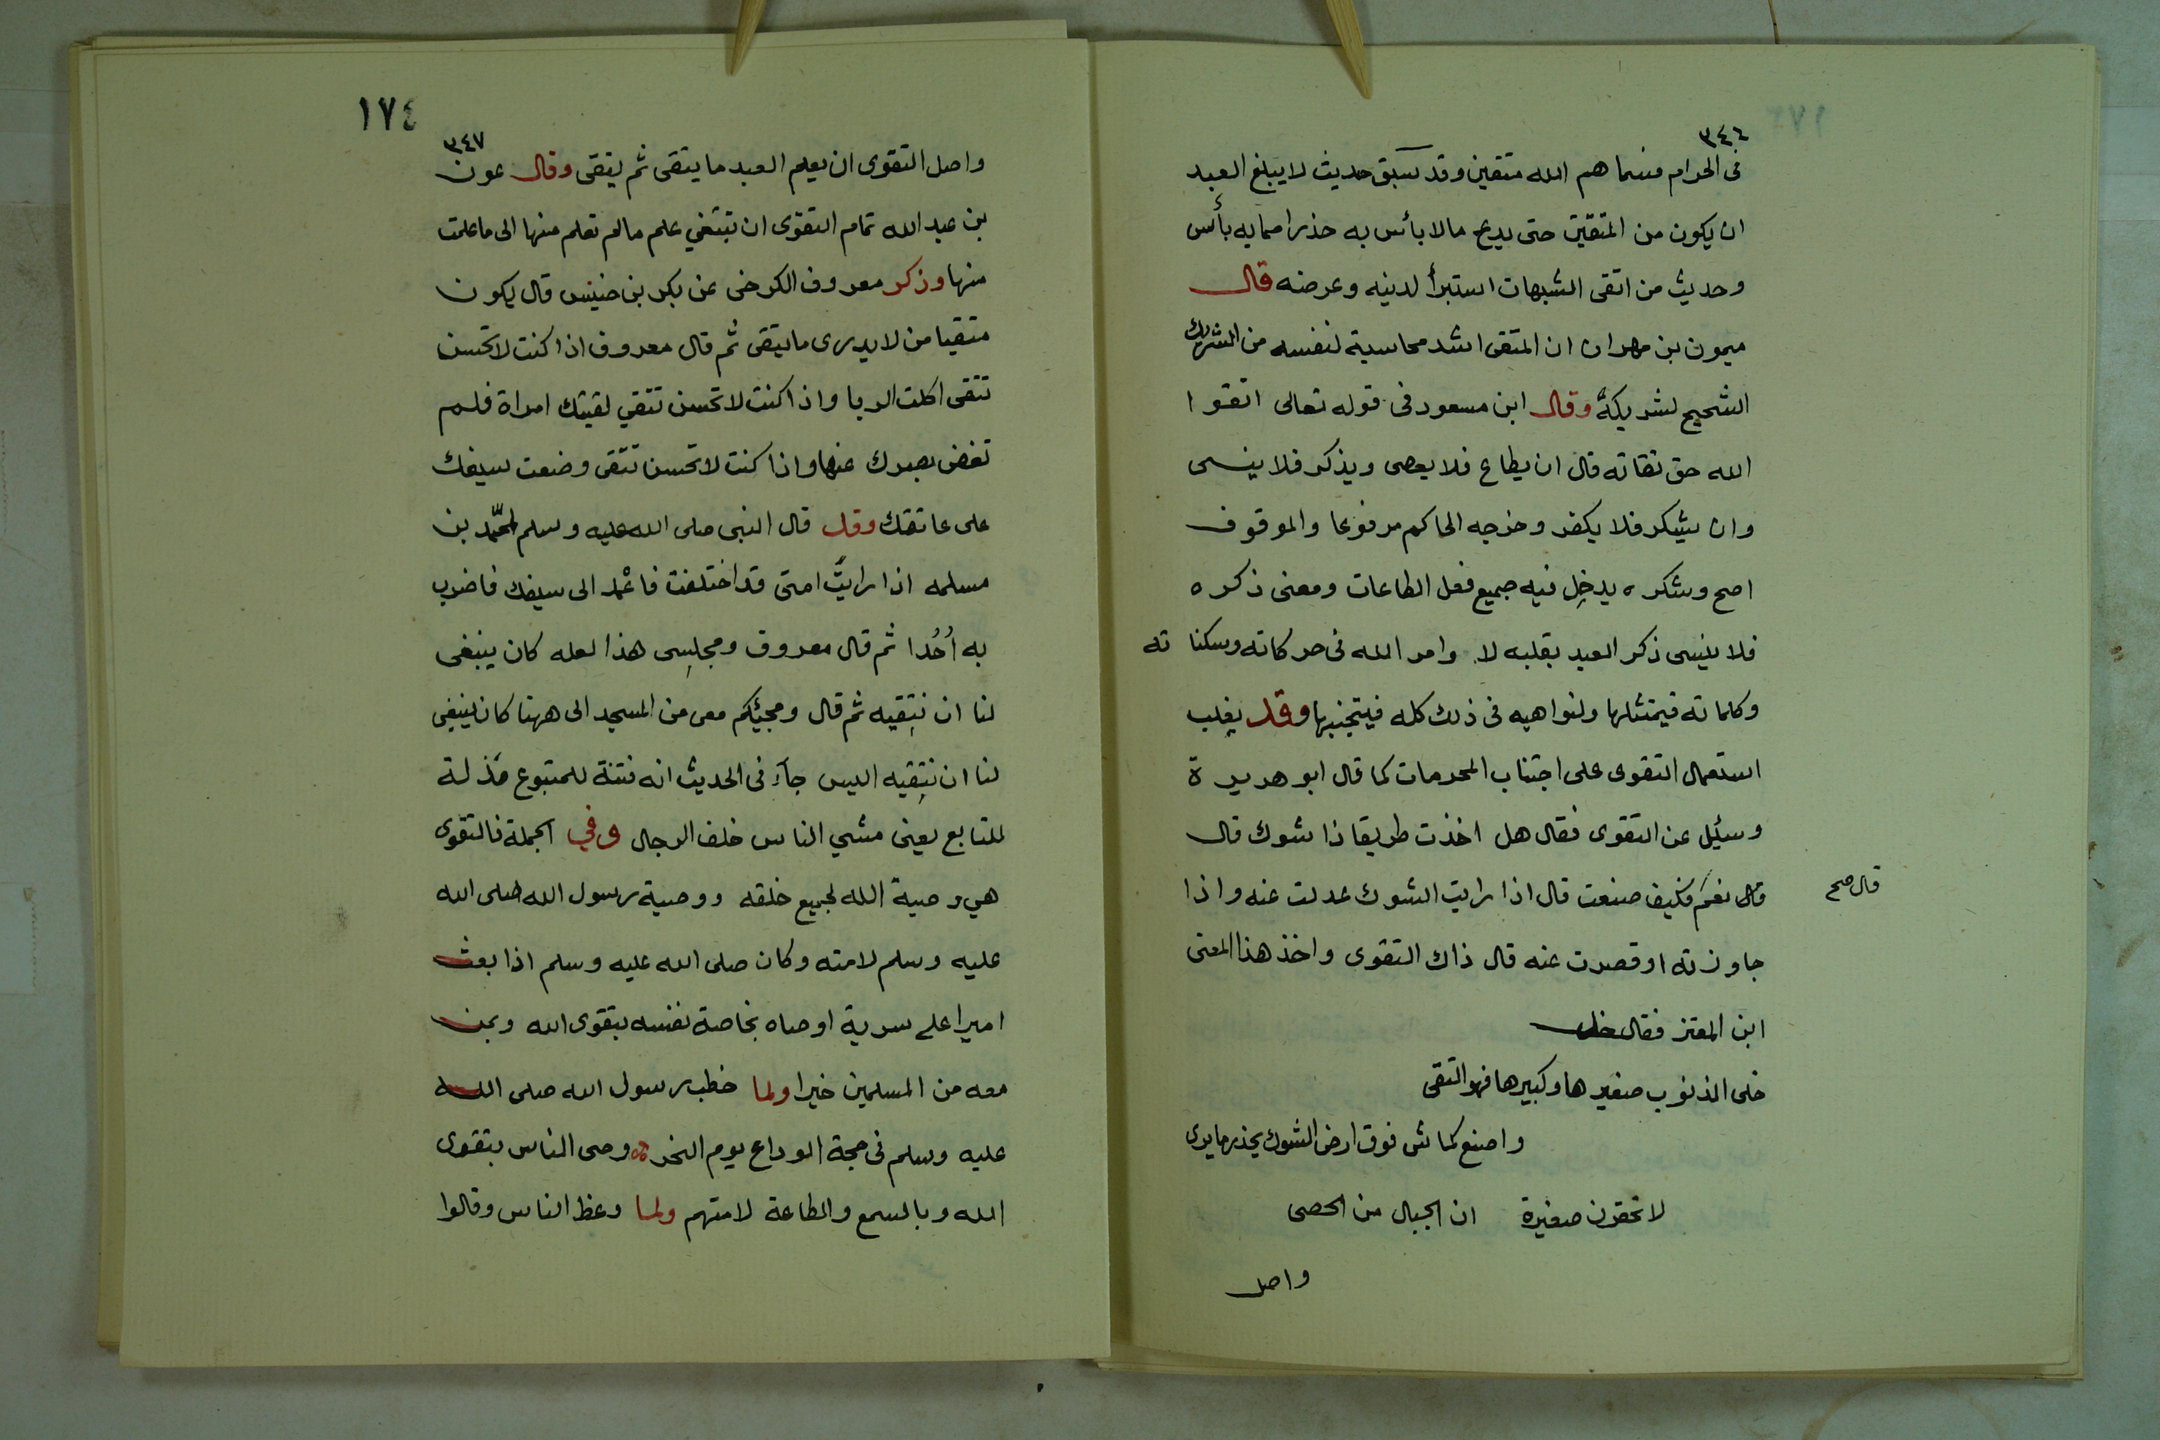 ٣٤٦
فى الحرام فسما هم الله متقين وقد سبق حديث لا يبلغ العبد
ان يكون من المتقين حتى يدع ما لا بأس به حذرا مما به بأس
وحديث من اتقى الشبهات استبرأ لدينه وعرضه قال
ميمون بن مهران ان المتقى اشد محاسبة لنفسه من الشريك
الشحيح لشريكه وقال ابن مسعود فى قوله تعالى اتقوا
الله حق تقاته قال ان يطاع فلا يعصى ويذكر فلا ينسى
وان يشكر فلا يكفر وخرجه الحاكم مرفوعا والموقوف
اصح وشكره يدخل فيه جميع فعل الطاعات ومعنى ذكره
فلا ينسى ذكر العبد بقلبه لا وامر الله فى حركاته وسكنا ته
وكلماته فيمتثلها ولنواهيه فى ذلك كله فيتجنبها وقد يغلب
استعمال التقوى على اجتناب المحرمات كما قال ابو هريرة
وسئيل عن التقوى فقال هل اخذت طريقا ذا شوك قال
قال نعم فكيف صنعت قال اذا رايت الشوك عدلت عنه واذا
قال صح
جاوزته او قصرت عنه قال ذاك التقوى واخذ هذا المعنى
ابن المعتز فقال خل
خلى الذنوب صغيرها وكبيرها فهو التقى
واصنع كماش فوق ارض الشوك يحذر ما يرى
لا تحقرن صغيرة ان الجبال من الحصى
واصل
١٧٤
٣٤٧
واصل التقوى ان يعلم العبد ما يتقى ثم يتقى وقال عون
بن عبد الله تمام التقوى ان تبتغي علم مالم تعلم منها الى ما علمت
منها وذكر معروف الكرخى عن بكر بن خنيس قال يكون
متقيا من لا يدرى ما يتقى ثم قال معروف اذا كنت لا تحسن
تتقى اكلت الربا واذا كنت لا تحسن تتقي لقيتك امراة فلم
تغض بصرك عنها واذا كنت لا تحسن تتقى وضعت سيفك
على عاتقك وقد قال النبى صلى الله عليه وسلم لمحمد بن
مسلمه اذا رايت امتى قد اختلفت فاعمد الى سيفك فاضرب
به أُحُدا ثم قال معروف ومجلسِى هذا لعله كان ينبغى
لنا ان نتقيه ثم قال ومجيئكم معى من المسجد الى ههنا كان ينبغى
لنا ان نتقيه اليس جآء فى الحديث انه فتنة للمتبوع مذلة
للتابع يعنى مشي الناس خلف الرجال وفي الجملة فالتقوى
هي وصية الله لجميع خلقه ووصية رسول الله صلى الله
عليه وسلم لامته وكان صلى الله عليه وسلم اذا بعث
اميرا على سرية اوصاه بخاصة نفسه بتقوى الله وبمن
معه من المسلمين خيرا ولما خطب رسول الله صلى الله
عليه وسلم فى حجة الوداع يوم النحر وصى الناس بتقوى
الله وبالسمع والطاعة لامتهم ولما وعظ الناس وقالوا